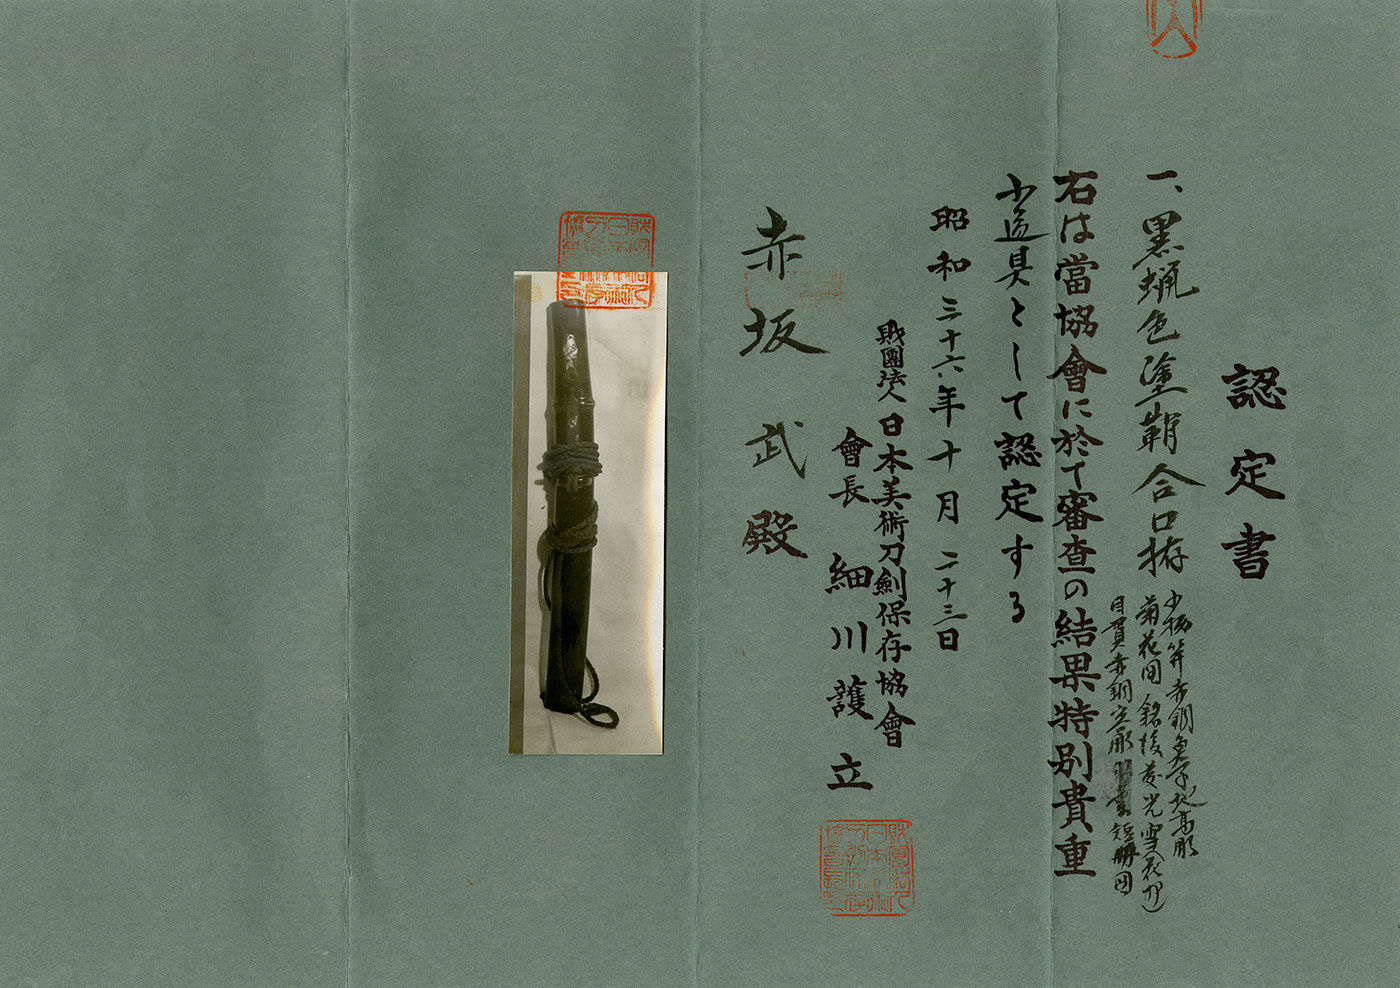 認定書
一、黒蝋色塗鞘合口拵
小柄笄赤銅魚子地高彫
菊花図 銘後藤光雪(花押)
目貫赤銅容彫 短冊図
右は當協會に於て審査の結果特別貴重
小道具として認定する
昭和三十六年十月二十三日
財團法人日本美術刀劍保存協會
會長 細川護立
赤坂武殿